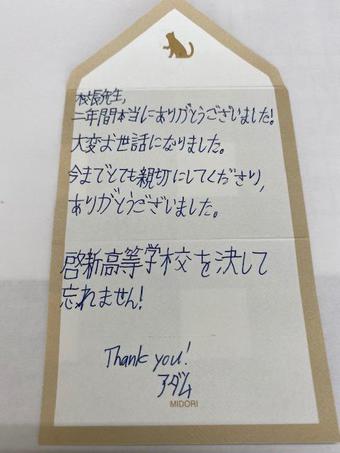 校長先生,
二年間本当にありがとうございました!
大変お世話になりました。
今までとても親切にしてくださり,
ありがとうございました。
啓新高等学校を決して
忘れません!
Thank you!
アダム
MIDORI